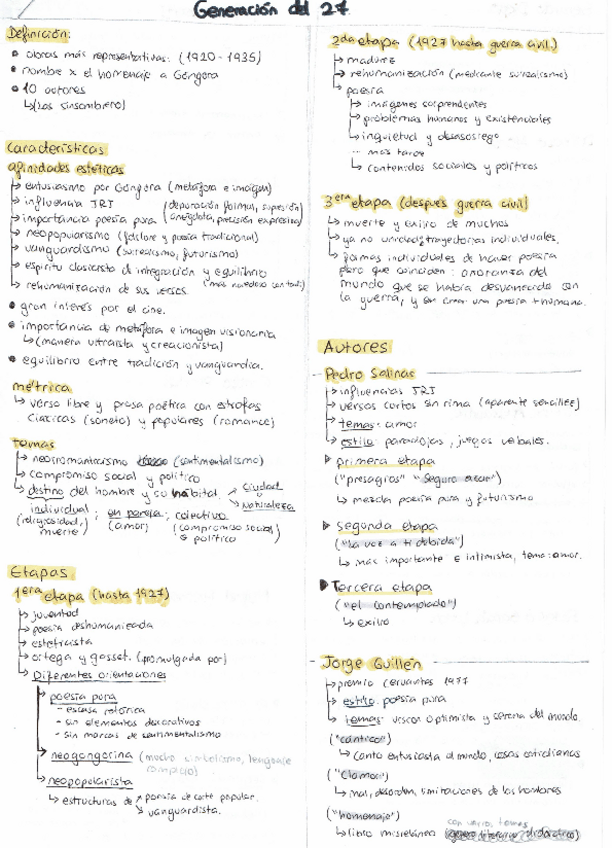 Generación del 27
Definición:
• obras más representativas: (1920 - 1935)
• nombre x el homenaje a Góngora
• 10 autores
↳ (Las sinsombrero)
Características
afinidades estéticas
↳ entusiasmo por Góngora (metáfora e imagen)
↳ influencia JRJ (depuración formal, supresión
↳ importancia poesía pura anécdota, precisión expresiva)
↳ neopopularismo (folclore y poesía tradicional)
↳ vanguardismo (surrealismo, futurismo)
↳ espíritu clasicista de integración y equilibrio
↳ rehumanización de sus versos.
• gran interés por el cine.
• importancia de metáfora e imagen visionaria
↳ (manera ultraísta y creacionista)
• equilibrio entre tradición y vanguardia.
métrica
↳ verso libre y prosa poética con estrofas
clásicas (soneto) y populares (romance)
temas
↳ neorromanticismo (sentimentalismo)
↳ compromiso social y político
↳ destino del hombre y su hábitat → ciudad
→ naturaleza
individual ; en pareja ; colectivo
(religiosidad, (amor) (compromiso social
muerte) o político
Etapas
1era etapa (hasta 1927)
↳ juventud
↳ poesía deshumanizada
↳ esteticista
↳ ortega y gasset. (promulgada por)
↳ Diferentes orientaciones
poesía pura
- escasa retórica
- sin elementos decorativos
- sin marcas de sentimentalismo
neogongorina (mucho simbolismo, lenguaje
complejo)
neopopularista
↳ estructuras de → poesía de corte popular.
↘ vanguardista.
2da etapa (1927 hasta guerra civil)
↳ madurez
↳ rehumanización (mediante surrealismo)
↳ poesía
↳ imágenes sorprendentes
↳ problemas humanos y existenciales
↳ inquietud y desasosiego
... mas tarde
↳ contenidos sociales y políticos
3era etapa (después guerra civil)
↳ muerte y exilio de muchos
↳ ya no unidad, trayectorias individuales.
↳ formas individuales de hacer poesía
pero que coinciden: añoranza del
mundo que se había desvanecido con
la guerra, y en crear una poesía + humana.
Autores
Pedro Salinas
↳ influencias JRJ
↳ versos cortos sin rima (aparente sencillez)
↳ temas: amor
↳ estilo: paradojas, juegos verbales.
▶ primera etapa
("presagios" "Seguro azar")
↳ mezcla poesía pura y futurismo
▶ Segunda etapa
("La voz a ti debida")
↳ más importante e intimista, tema: amor.
▶ Tercera etapa
("el contemplado")
↳ exilio
Jorge Guillén
↳ premio cervantes 1977
↳ estilo: poesía pura
↳ temas: visión optimista y serena del mundo
("cántico")
↳ Canto entusiasta al mundo, cosas cotidianas
("Clamor")
↳ mal, desorden, limitaciones de los hombres
("homenaje")
↳ libro misceláneo con varios temas